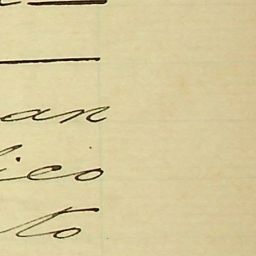 an
lico
to